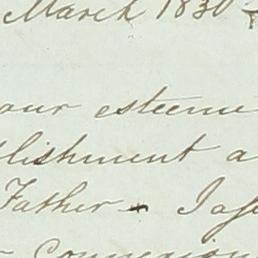 March 1830
our esteeme
lishment a
Father - I
Connexion